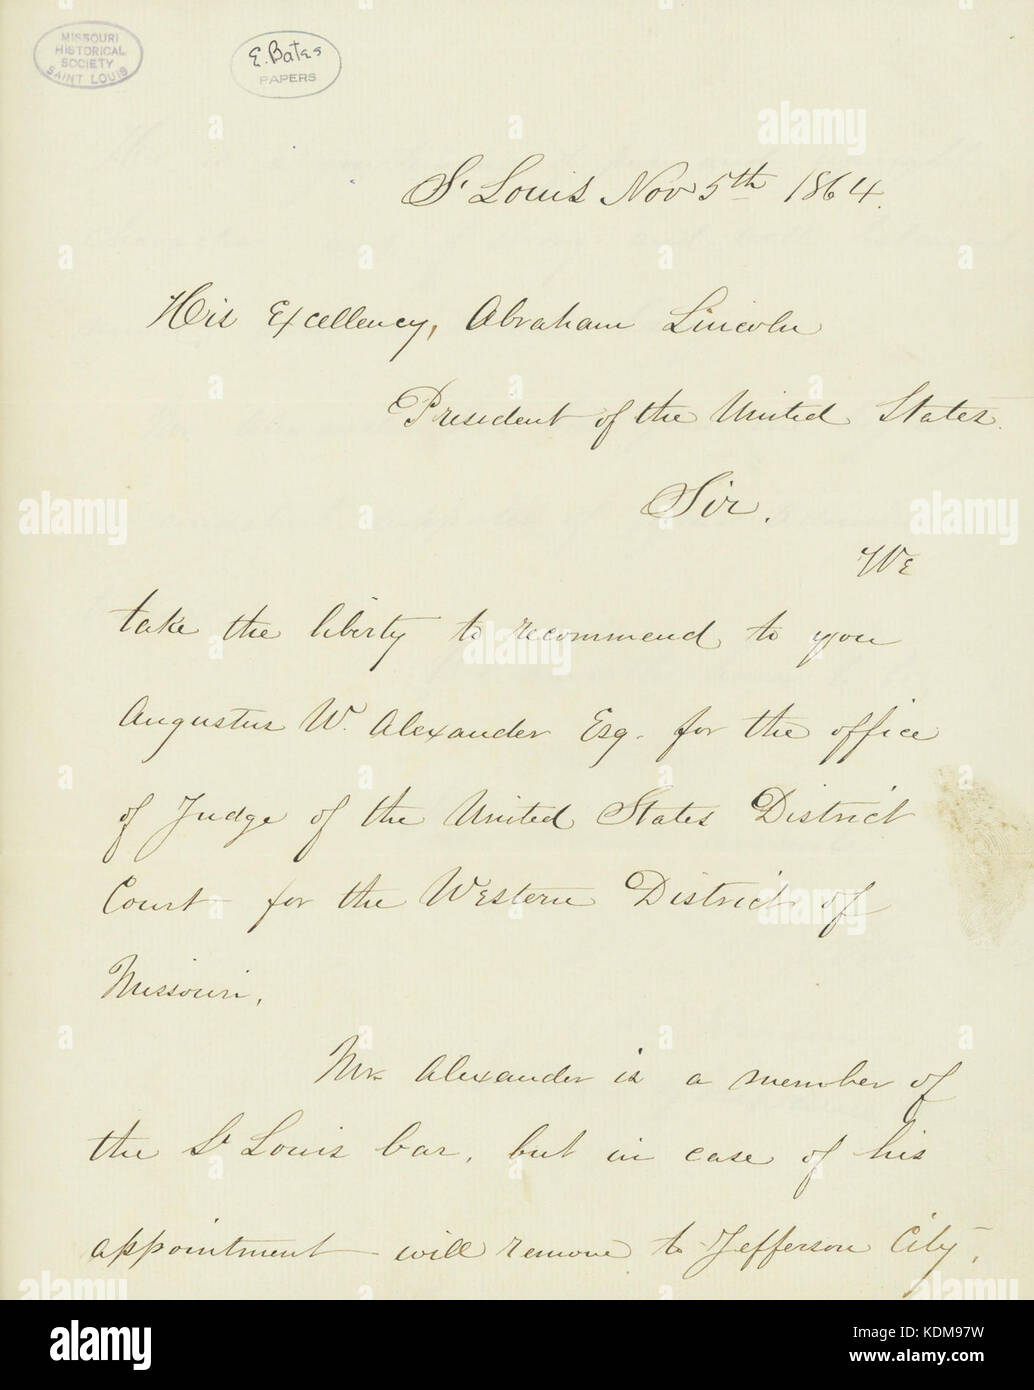 MISSOURI
HISTORICAL
SOCIETY
SAINT LOUIS
E. Bates
PAPERS
St Louis Nov 5th 1864.
His Excellency, Abraham Lincoln
President of the United States.
Sir,
We
take the liberty to recommend to you
Augustus W. Alexander Esq. for the office
of Judge of the United States District
Court for the Western District of
Missouri.
Mr. Alexander is a member of
the St Louis bar, but in case of his
appointment will remove to Jefferson City,
alamy
Image ID: KDM97W
www.alamy.com